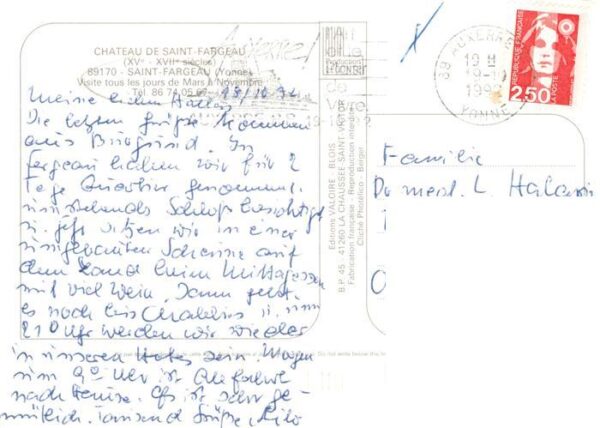 CHATEAU DE SAINT-FARGEAU
(XVᵉ - XVIIᵉ siècles)
89170 - SAINT-FARGEAU (Yonne)
Visite tous les jours de Mars à Novembre
Tél 86 74 05 67
18/10.92
Meine lieben
Die letzten Grüße kommen
aus Burgund. In
Fergeau haben wir für 2
Tage Quartier genommen,
umstehendes Schloß besichtigt
u. jetzt sitzen wir in einer
umgebauten Scheune auf
dem Land beim Mittagessen
mit viel Wein. Dann geht
es noch bis Chablis u. um
Uhr werden wir wieder
in unserem sein. Morgen
um 9⁰⁰ Uhr ist Abfahrt
nach Hause. Es ist sehr ge-
mütlich. Tausend Grüße,
Editions VALOIRE - BLOIS
B.P. 45 41260 LA CHAUSSÉE SAINT-VICTOR
Fabrication française - Reproduction interdite
Cliché Photorico - Berger
89 AUXERRE
10 H
19-10
1992
YONNE
RÉPUBLIQUE FRANÇAISE
LA POSTE
2,50
Familie
Dr med. L.